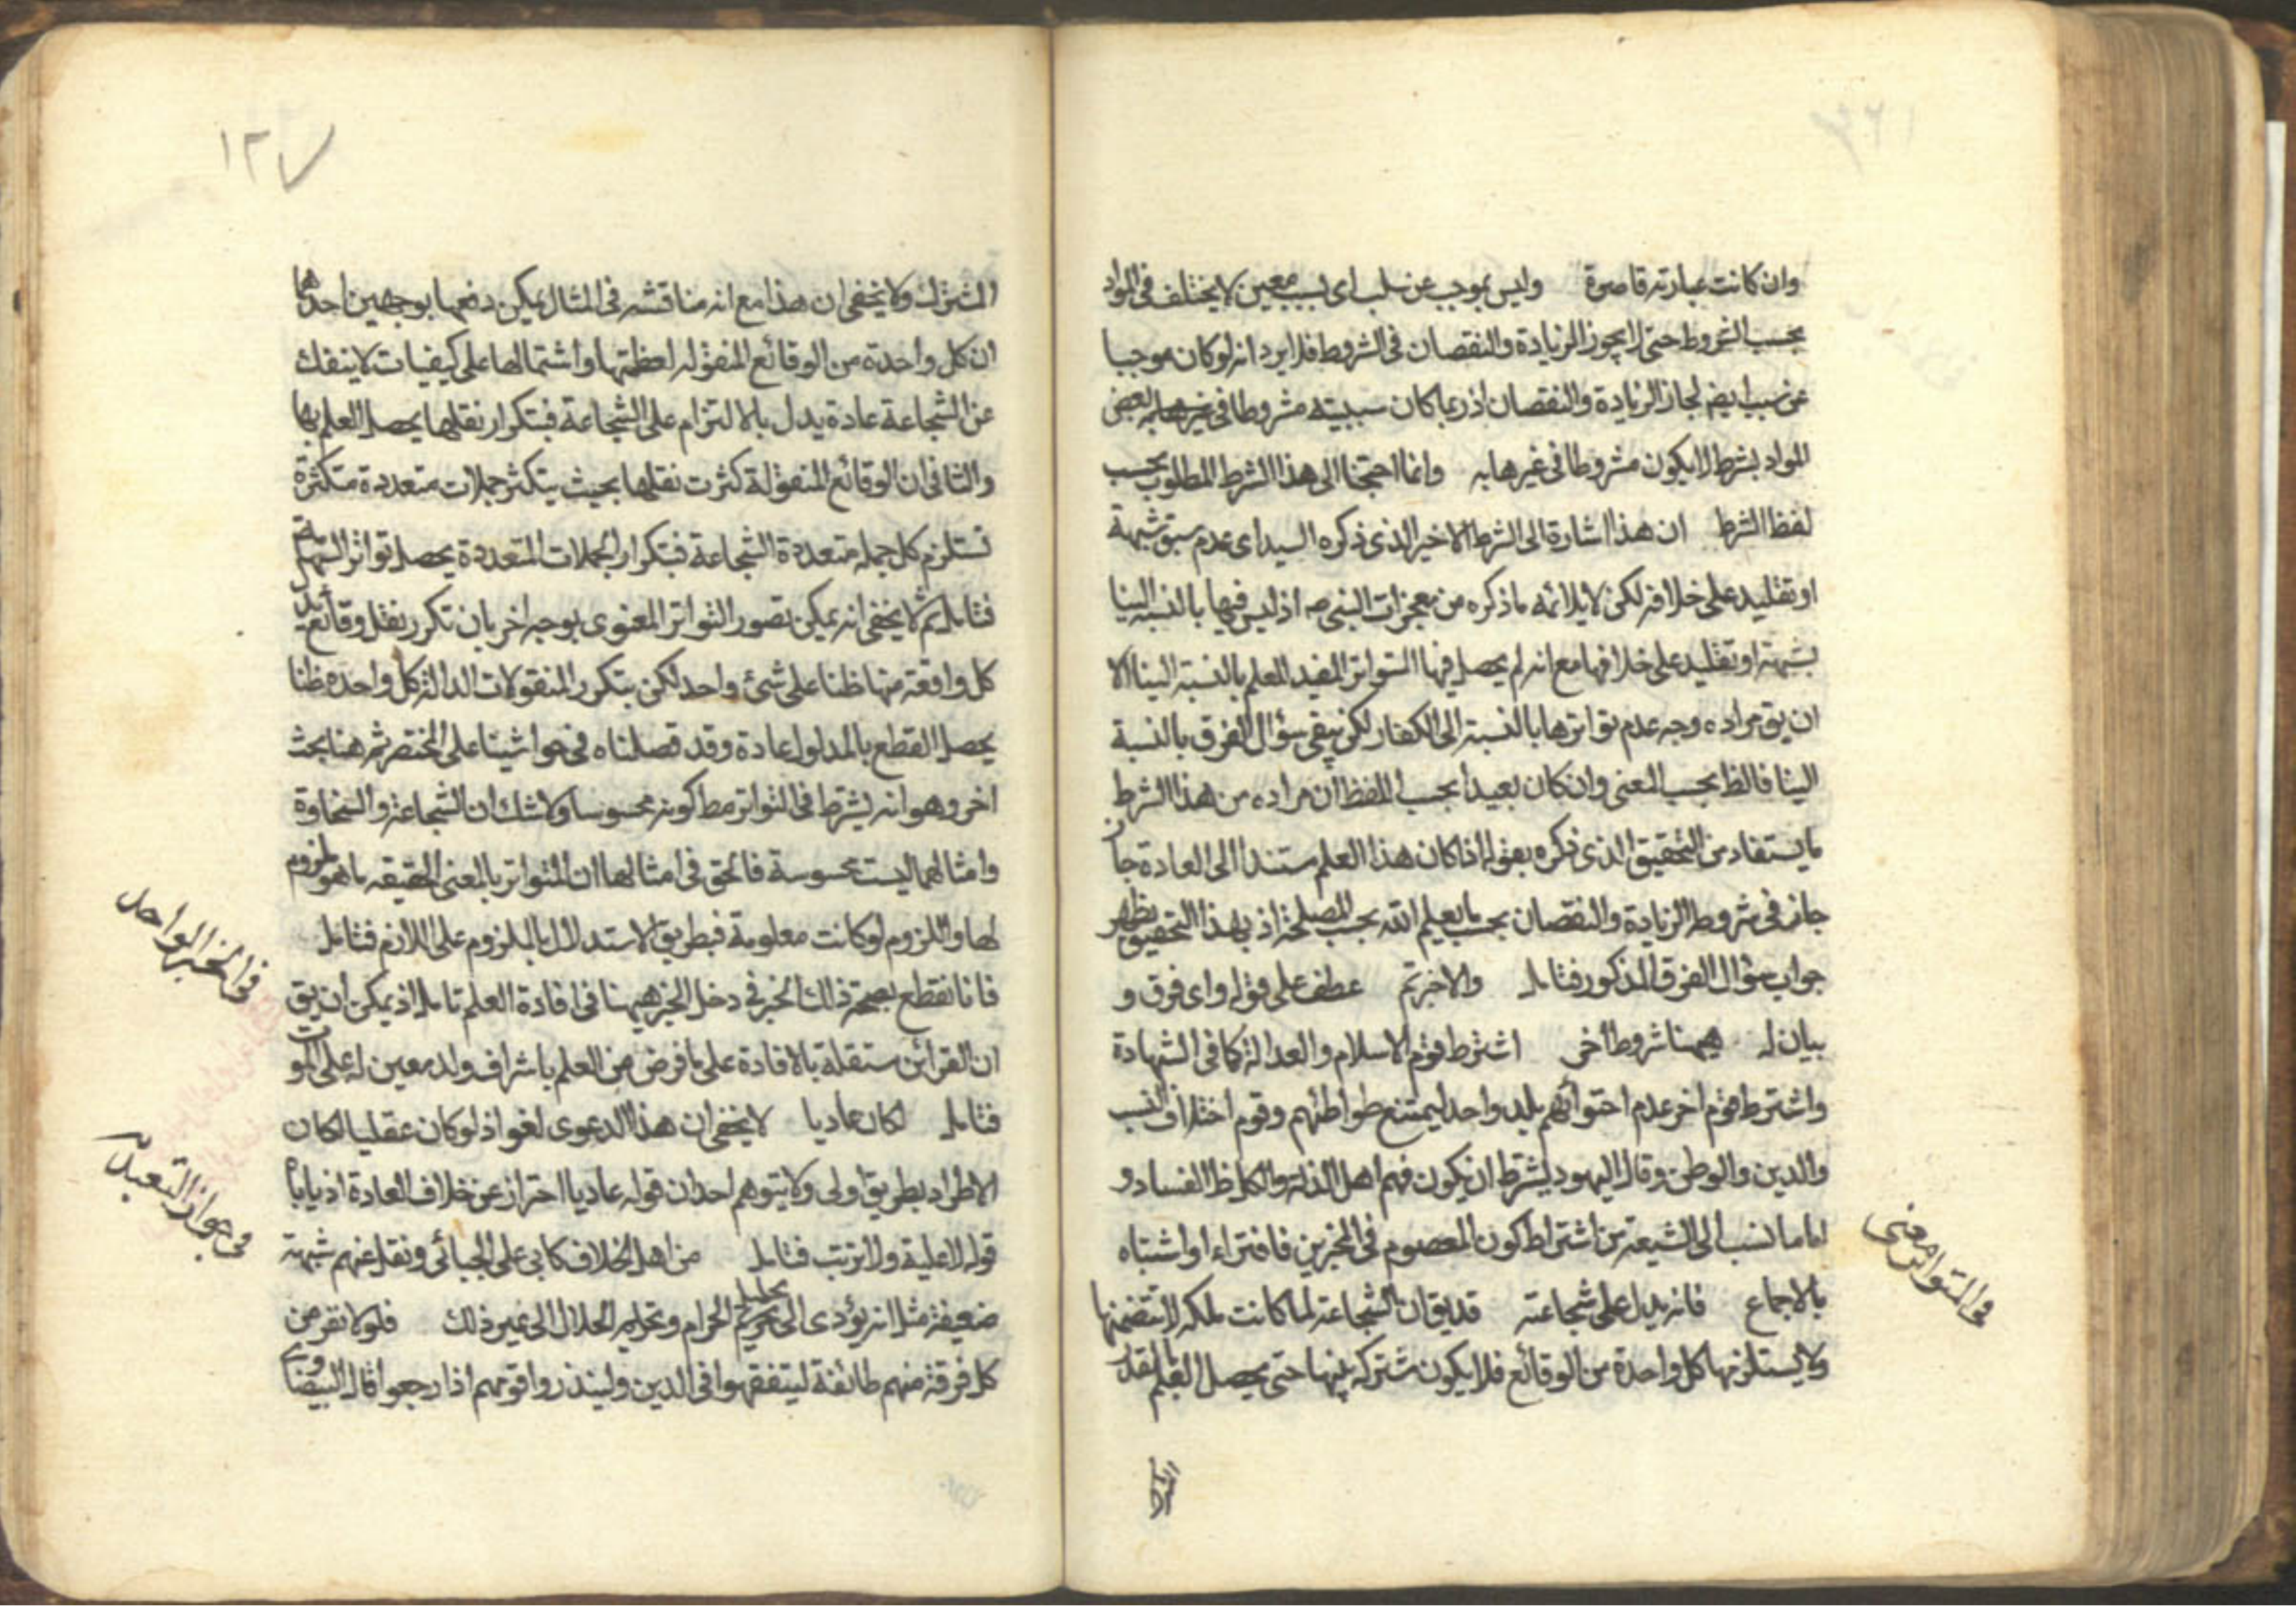 وان كانت عبارته قاصرة وليس بموجب عن سبب اى سبب معين لا يختلف فى المواد
بحسب الشروط حتى لا يجوز الزيادة والنقصان فى الشروط فلا يرد انه لو كان موجبا
عن سبب ايضا لجاز الزيادة والنقصان اذ ربما كان سببيته مشروطا فى بعض
المواد بشرط لا يكون مشروطا فى غيرها به وانما احتجنا الى هذا الشرط المطلوب بحسب
لفظ الشرط ان هذا اشارة الى الشرط الاخير الذى ذكره السيد اى عدم سبق شبهة
او تقليد على خلافه لكن لا يلائمه ما ذكره من معجزات النبى صه اذ ليس فيها بالنسبة الينا
شبهة او تقليد على خلافها مع انه لم يحصل فيها التواتر المفيد للعلم بالنسبة الينا الا
ان يق مراده وجه عدم تواترها بالنسبة الى الكفار لكن يبقى سؤال الفرق بالنسبة
الينا فالظ بحسب المعنى وان كان بعيدا بحسب اللفظ ان مراده من هذا الشرط
ما يستفاد من التحقيق الذى ذكره بقوله اذا كان هذا العلم مستندا الى العادة جاز
جاز فى شروطه الزيادة والنقصان بحسب ما يعلم الله بحسب المصلحة اذ بهذا التحقيق يظهر
جواب سؤال الفرق المذكور فتامل والاخبرتم عطف على قوله واى فرق و
بيان له ههنا شروط أخر اشترط قوم الاسلام والعدالة كما فى الشهادة
واشترط قوم اخر عدم احتوائهم بلد واحد ليمتنع تواطئهم وقوم اختلاف النسب
والدين والوطن وقال اليهود يشترط ان يكون فيهم اهل الذلة والكل ظ الفساد و
اما ما نسب الى الشيعة من اشتراط كون المعصوم فى المخبرين فافتراء او اشتباه
بالاجماع فانه يدل على شجاعته قد يق ان الشجاعة لما كانت ملكة لا يتضمنها
ولا يستلزمها كل واحدة من الوقائع فلا يكون مشتركة بينها حتى يحصل العلم بالقدر
فى المتواتر معنى
١٢٧
المشترك ولا يخفى ان هذا مع انه مناقشه فى المثال يمكن دفعها بوجهين احدهما
ان كل واحدة من الوقائع المنقولة لعظمتها واشتمالها على كيفيات لا ينفك
عن الشجاعة عادة يدل بالالتزام على الشجاعة فبتكرار نقلها يحصل العلم بها
والثانى ان الوقائع المنقولة كثرت نقلها بحيث يتكثر جملات متعددة متكثرة
تستلزم كل جملة متعددة الشجاعة فبتكرار الجملات المتعددة يحصل تواتر
فتامل ثم لا يخفى انه يمكن تصور التواتر المعنوى بوجه اخر بان تكرر نقل وقائع يدل
كل واقعة منها ظنا على شئ واحد لكن بتكرر المنقولات الدالة كل واحده ظنا
يحصل القطع بالمدلول عادة وقد فصلناه فى حواشينا على المختصر ثم هنا بحث
اخر وهو انه يشترط فى التواتر مط كونه محسوسا ولا شك ان الشجاعة والسخاوة
وامثالهما ليست محسوسة فالحق فى امثالها ان المتواتر بالمعنى الحقيقه ما هو ملزوم
لها واللزوم لو كانت معلومة فبطريق الاستدلال بالملزوم على اللازم فتامل
فانا نقطع بصحة ذلك الخبر فى دخل الخبر ههنا فى افادة العلم تامل اذ يمكن ان يق
ان القرائن مستقلة بالافادة على ما فرض من العلم باشراف ولد معين له على الموت
فتامل لكان عاديا لا يخفى ان هذا الدعوى لغو اذ لو كان عقليا لكان
الاطراد بطريق اولى ولا يتوهم احد ان قوله عاديا احتراز عن خلاف العادة اذ ياباه
قوله لا علية ولا ترتب فتامل من اهل الخلاف كابى على الجبائى ونقل عنهم شبهة
ضعيفة مثل انه يؤدى الى تحليل الحرام وتحريم الحلال الى غير ذلك فلولا نفر من
كل فرقة منهم طائفة ليتفقهوا فى الدين ولينذروا قومهم اذا رجعوا قال البيضاوى
فى الخبر الواحد
فى جواز التعبد